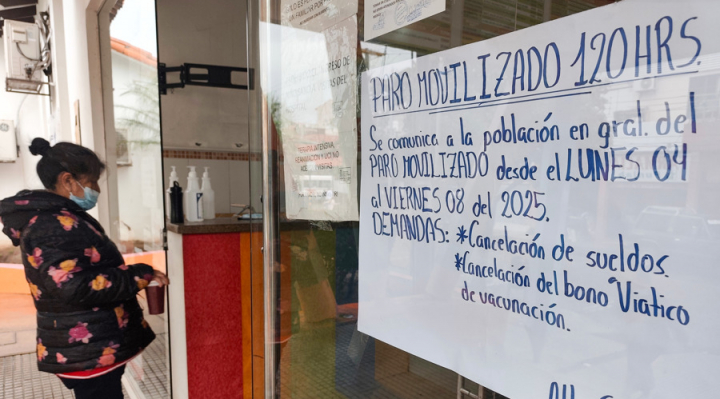 PARO MOVILIZADO 120 HRS.
Se comunica a la población en gral. del
PARO MOVILIZADO desde el LUNES 04
al VIERNES 08 del 2025.
DEMANDAS: *Cancelación de sueldos.
*Cancelación del bono Viatico
de vacunación.